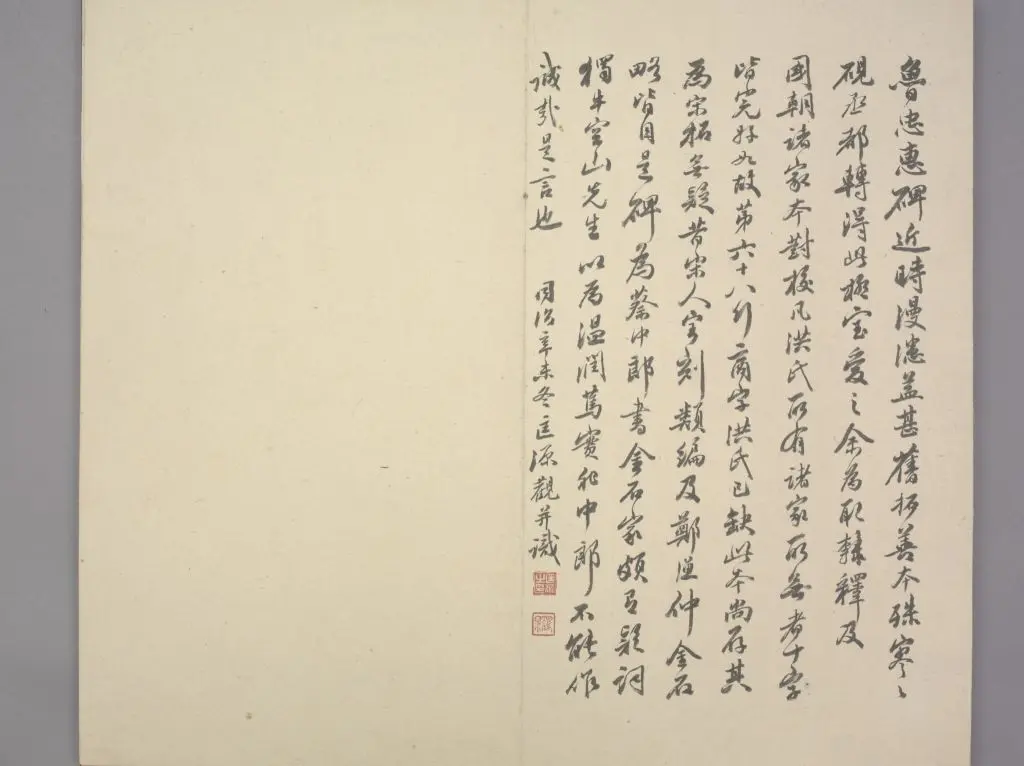 魯忠惠碑近時漫漶益甚舊拓善本殊寥〻
硯丞都轉得此極宝愛之余為取隸釋及
國朝諸家本對校凡洪氏所有諸家所無者十餘字
皆完好如故第六十八行商字洪氏已缺此本尚存其
為宋拓無疑昔宋人寶刻類編及鄭漁仲金石
略皆目是碑為蔡中郎書金石家頗有疑詞
獨牛空山先生以為溫潤篤實非中郎不能作
誠哉是言也 同治辛未冬匡源觀并識